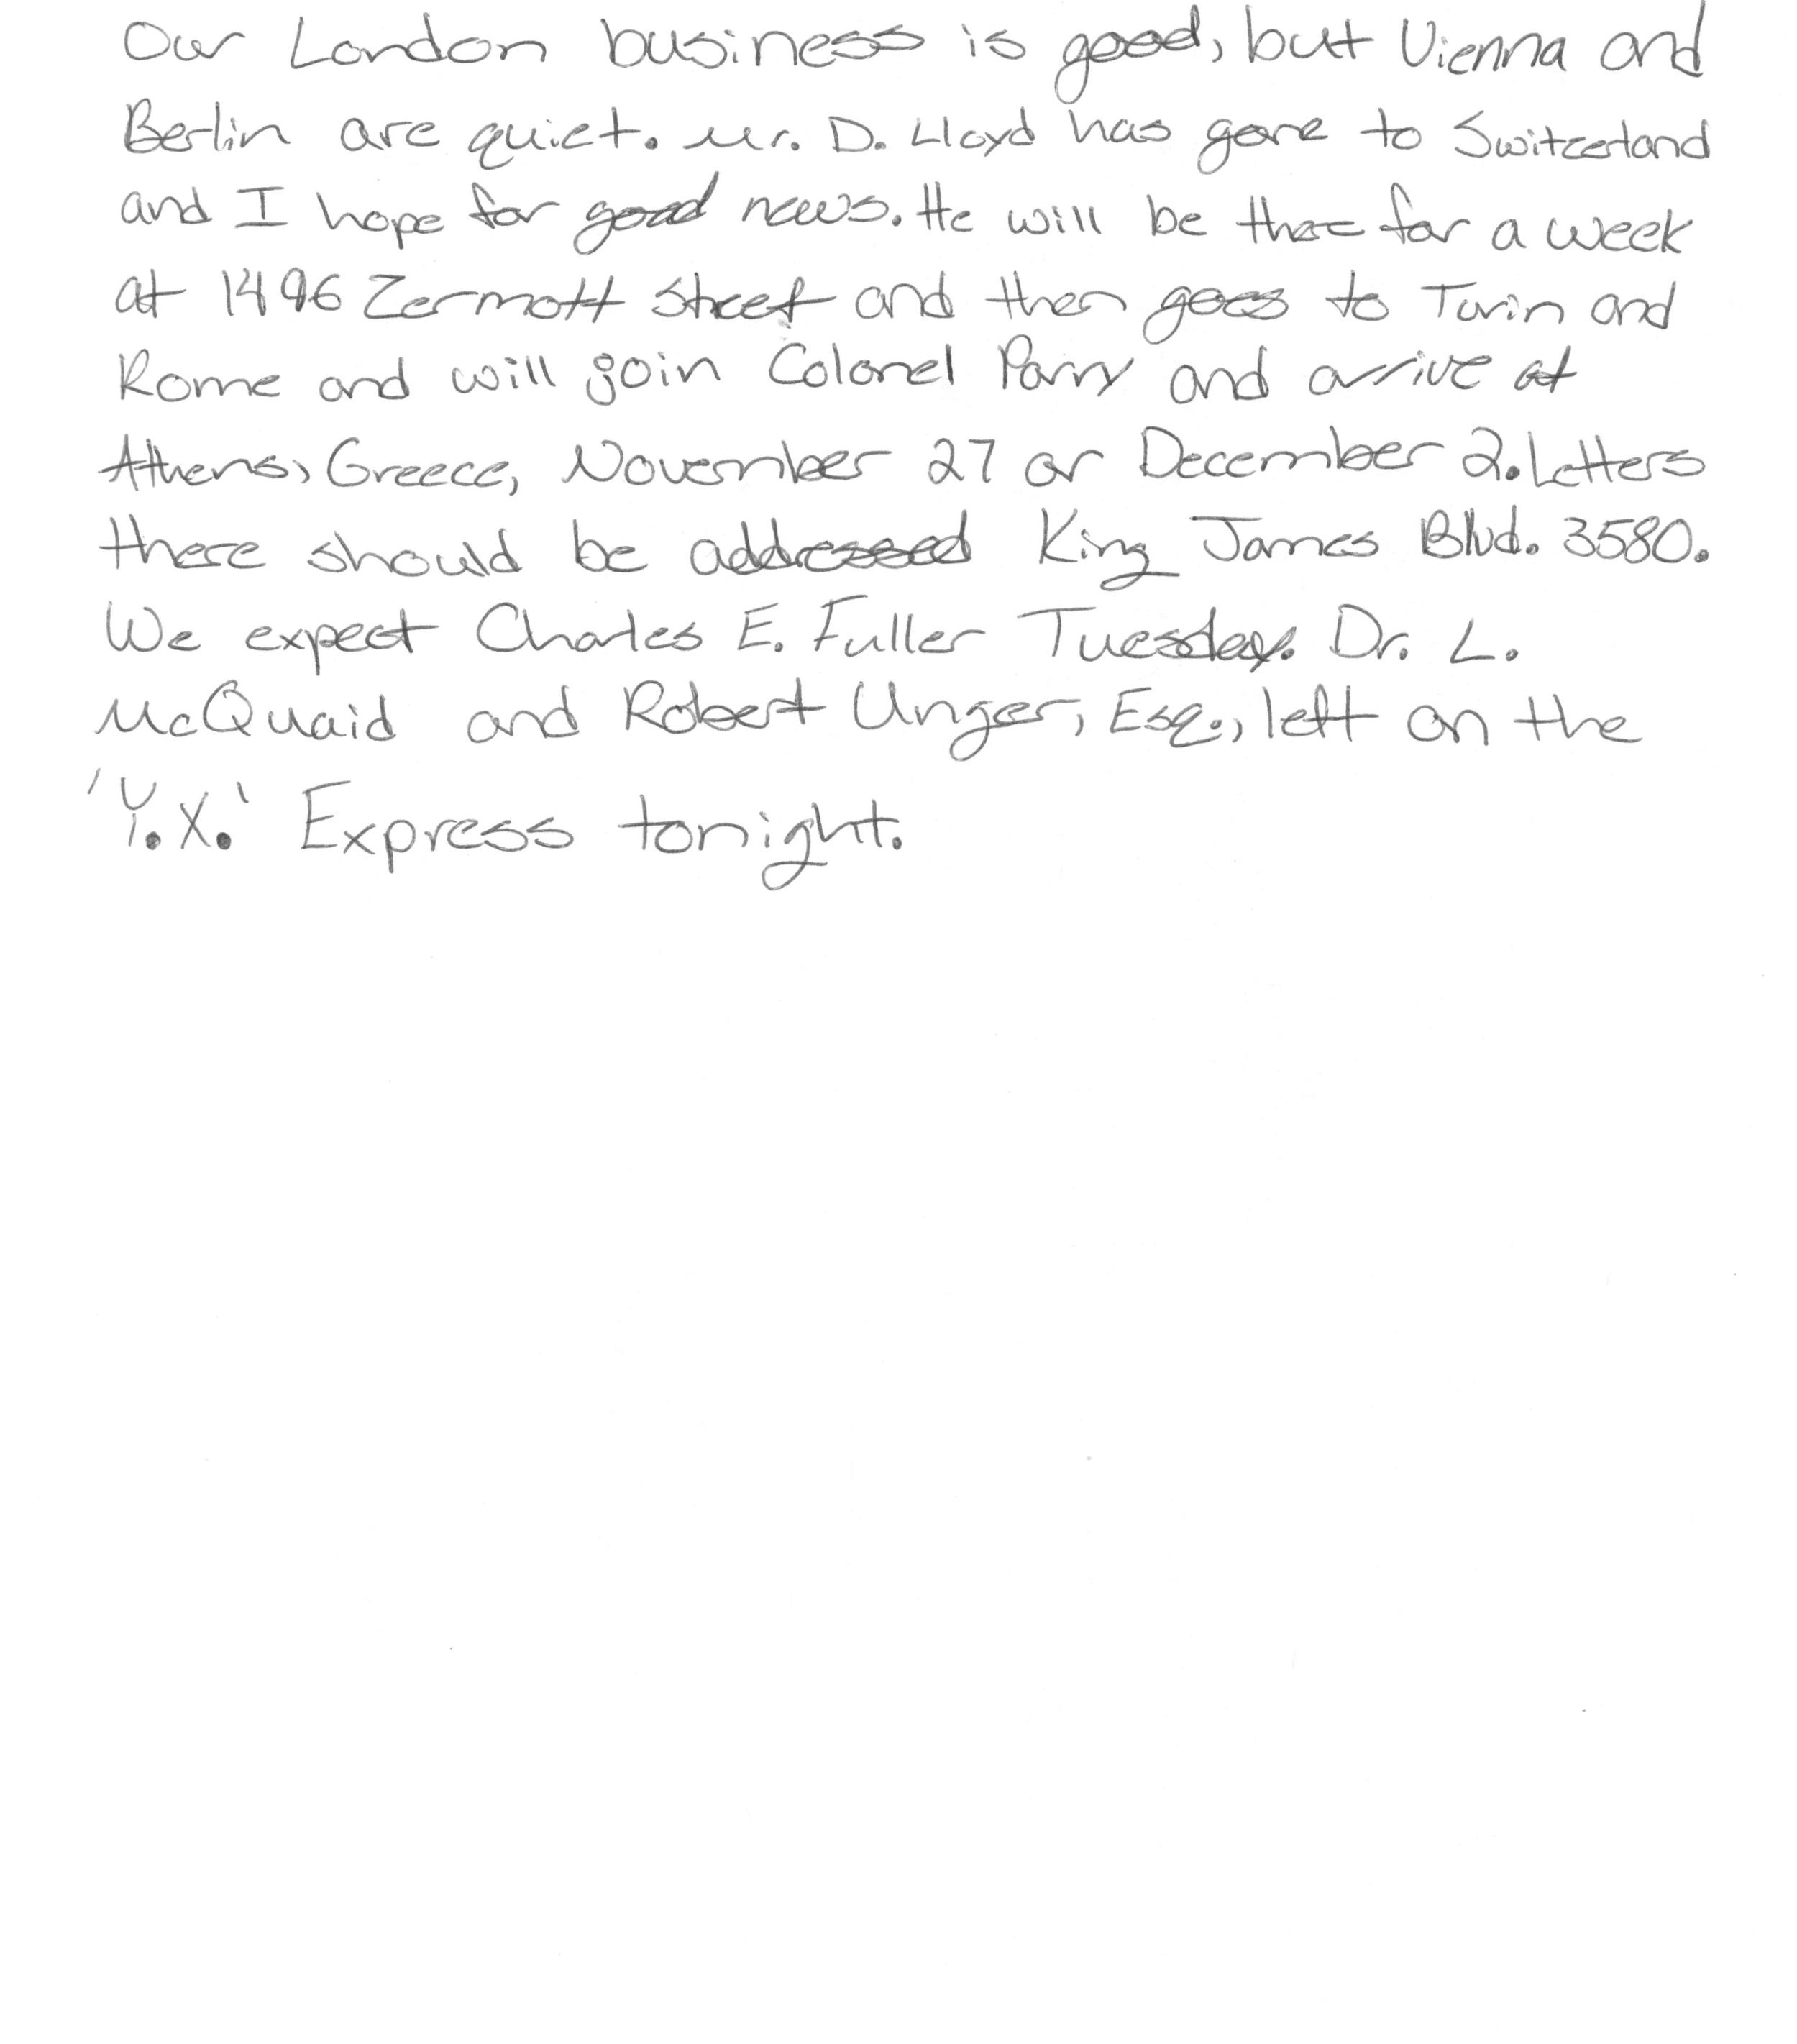 Our London business is good, but Vienna and
Berlin are quiet. Mr. D. Lloyd has gone to Switzerland
and I hope for good news. He will be there for a week
at 1496 Zermott Street and then goes to Turin and
Rome and will join Colonel Parry and arrive at
Athens, Greece, November 27 or December 2. Letters
there should be addressed King James Blvd. 3580.
We expect Charles E. Fuller Tuesday. Dr. L.
McQuaid and Robert Unger, Esq., left on the
'Y.X.' Express tonight.